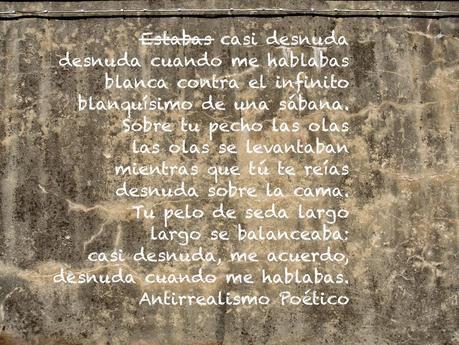 Estabas casi desnuda
desnuda cuando me hablabas
blanca contra el infinito
blanquísimo de una sábana.
Sobre tu pecho las olas
las olas se levantaban
mientras que tú te reías
desnuda sobre la cama.
Tu pelo de seda largo
largo se balanceaba;
casi desnuda, me acuerdo,
desnuda cuando me hablabas.
Antirrealismo Poético